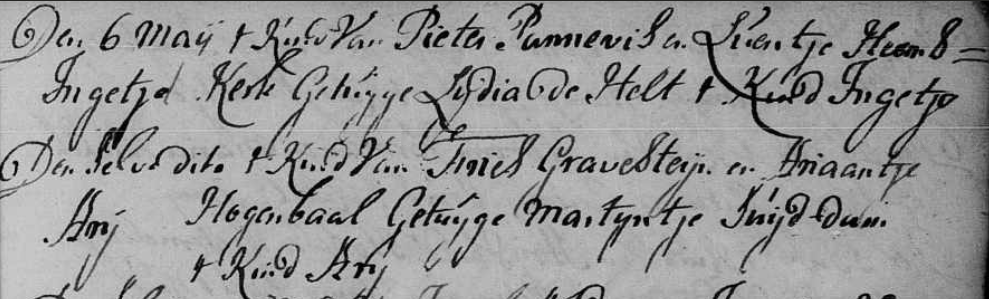 Den 6 Maÿ t Kind Van Pieter Pannevis en Lÿentje Heem8=
Ingetje Kerk Getuÿge Lÿdia de Helt t Kind Ingetje
Den Selve dito t Kind Van Tnies Gravesteijn en Ariaantje
Arÿ Hogenbaal Getuÿge Martyntje Suÿd-duin
t Kind Arÿ